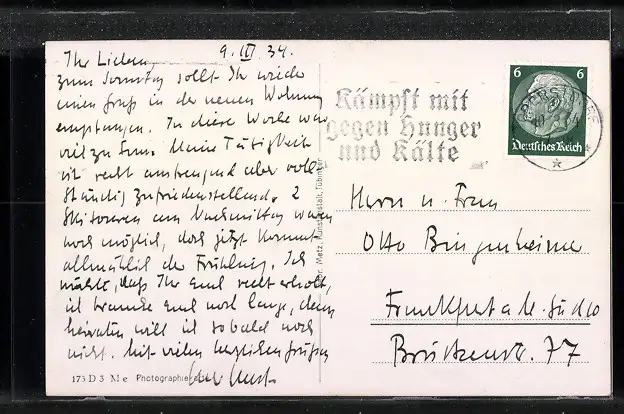 9. III. 34.
Ihr Lieben,
zum Sonntag sollt Ihr wieder
einen Gruß in der neuen Wohnung
empfangen. In diese Woche war
viel zu tun. Meine Tätigkeit
ist recht anstrengend aber voll-
ständig zufriedenstellend. 2
Skitouren am Nachmittag waren
noch möglich, doch jetzt kommt
allmählich der Frühling. Ich
möchte, daß Ihr Euch recht erholt,
ich brauche Euch noch lange, denn
heiraten will ich so bald noch
nicht. Mit vielen herzlichen Grüßen
173 D 3 M e Photographie
Metz, Kunstanstalt, Tübingen
Kämpft mit
gegen Hunger
und Kälte
6 6
Deutsches Reich
Herrn u. Frau
Otto Bingenheimer
Frankfurt a. M. Süd 10
Brückenstr. 77